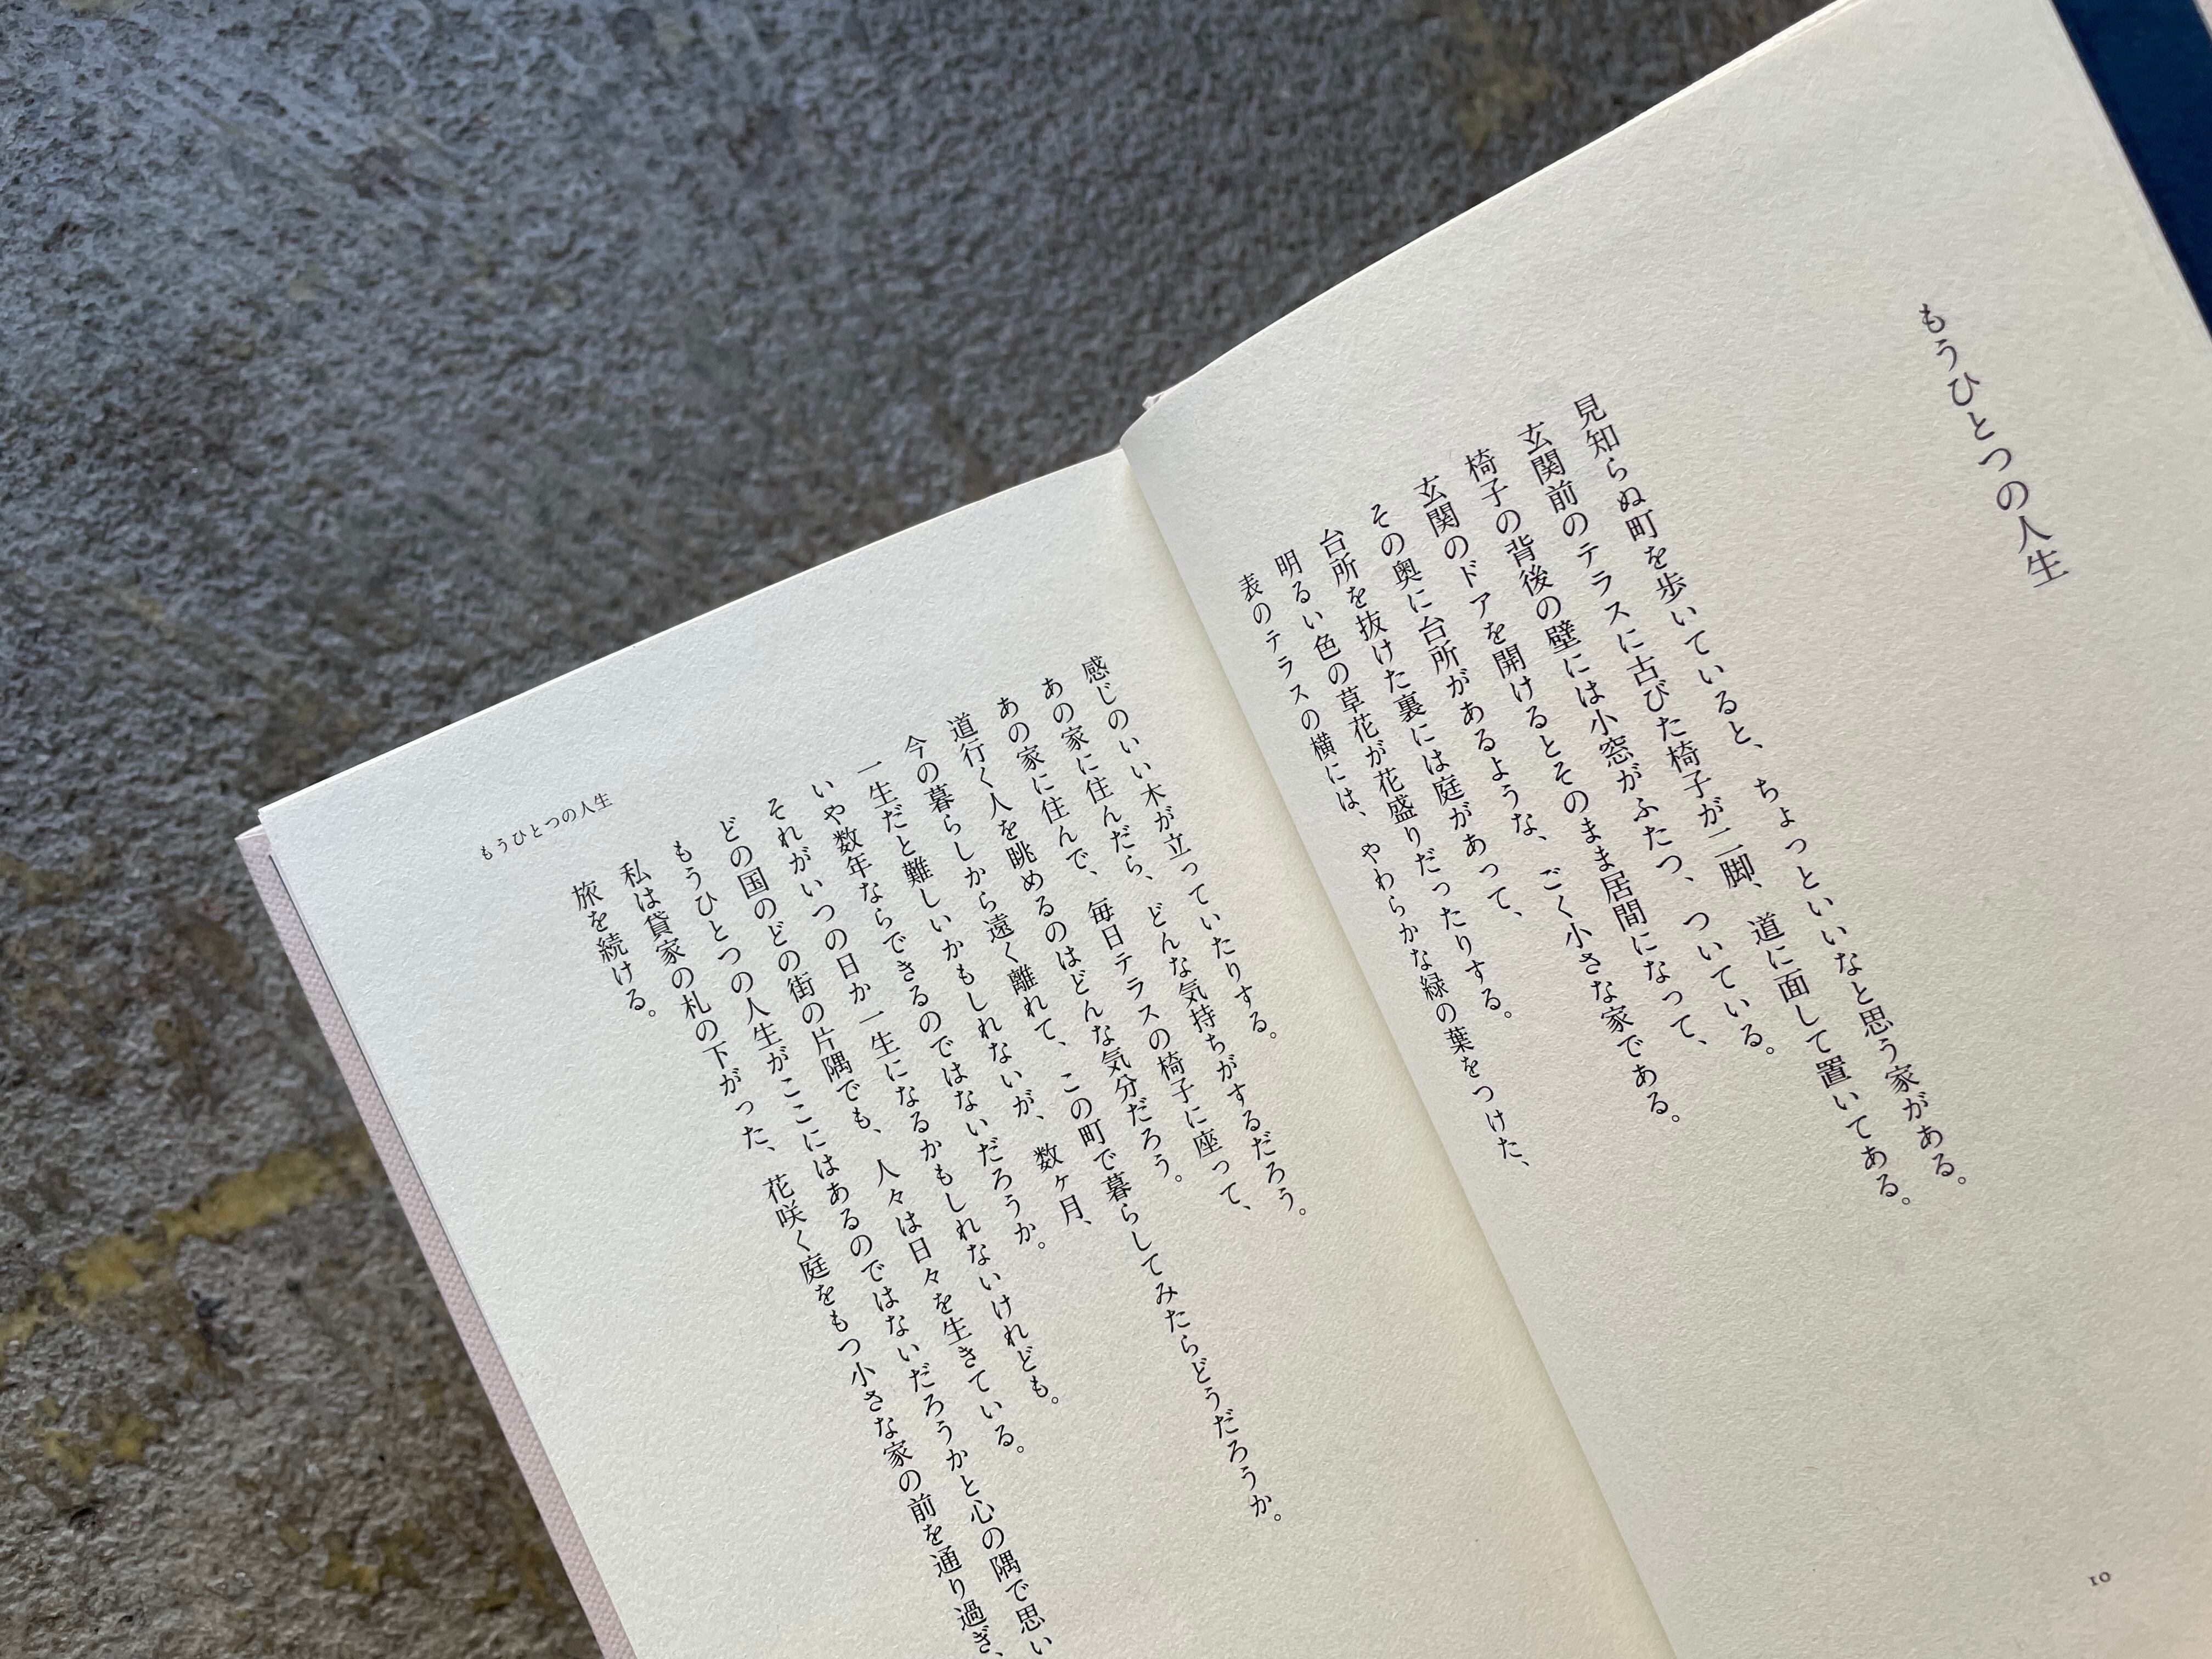 もうひとつの人生
見知らぬ町を歩いていると、ちょっといいなと思う家がある。
玄関前のテラスに古びた椅子が二脚、道に面して置いてある。
椅子の背後の壁には小窓がふたつ、ついている。
玄関のドアを開けるとそのまま居間になって、
その奥に台所があるような、ごく小さな家である。
台所を抜けた裏には庭があって、
明るい色の草花が花盛りだったりする。
表のテラスの横には、やわらかな緑の葉をつけた、
10
感じのいい木が立っていたりする。
あの家に住んだら、どんな気持ちがするだろう。
あの家に住んで、毎日テラスの椅子に座って、
道行く人を眺めるのはどんな気分だろう。
今の暮らしから遠く離れて、この町で暮らしてみたらどうだろうか。
一生だと難しいかもしれないが、数ヶ月、
いや数年ならできるのではないだろうか。
それがいつの日か一生になるかもしれないけれども。
どの国のどの街の片隅でも、人々は日々を生きている。
もうひとつの人生がここにはあるのではないだろうかと心の隅で思い
私は貸家の札の下がった、花咲く庭をもつ小さな家の前を通り過ぎ、
旅を続ける。
もうひとつの人生